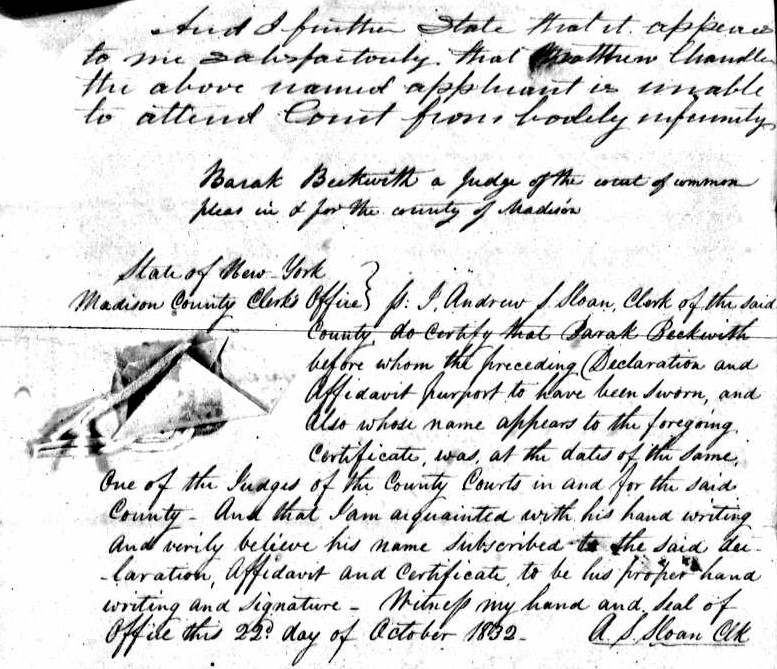 And I further State that it appears
to me satisfactorily that Matthew Chandler
the above named applicant is unable
to attend Court from bodily infirmity
Barak Beckwith a Judge of the court of common
pleas in & for the county of Madison
State of New-York
Madison County Clerk's Office } ss: I, Andrew S. Sloan, Clerk of the said
County, do certify that Barak Beckwith
before whom the preceding Declaration and
Affidavit purport to have been sworn, and
also whose name appears to the foregoing
Certificate, was, at the dates of the same,
One of the Judges of the County Courts in and for the said
County - And that I am acquainted with his hand writing
and verily believe his name subscribed to the said dec-
-laration, Affidavit and Certificate, to be his proper hand
writing and signature - Witness my hand and seal of
Office this 22d day of October 1832-
A. S. Sloan Clk